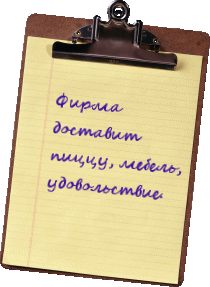 Фирма
доставит
пиццу, мебель,
удовольствие.